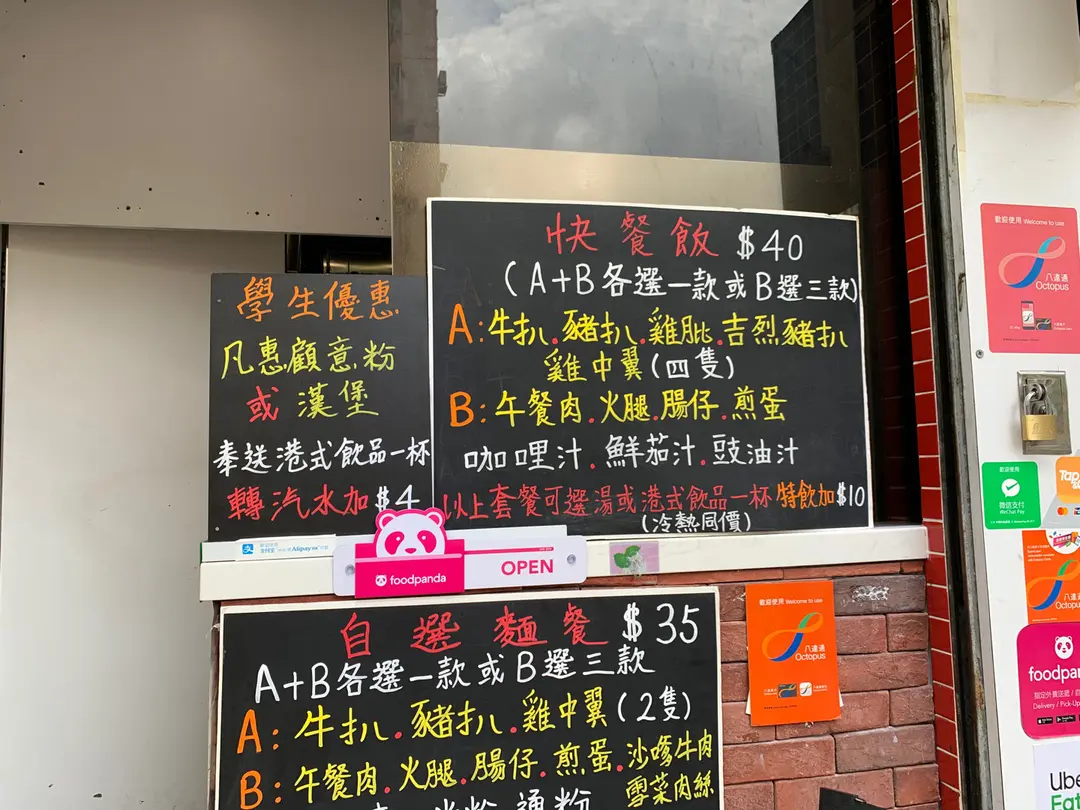 學生優惠
凡惠顧意粉
或漢堡
奉送港式飲品一杯
轉汽水加$4
快餐飯 $40
(A+B各選一款或B選三款)
A:牛扒.豬扒.雞肶.吉烈豬扒
雞中翼(四隻)
B:午餐肉.火腿.腸仔.煎蛋
咖哩汁.鮮茄汁.豉油汁
以上套餐可選湯或港式飲品一杯 特飲加$10
(冷熱同價)
支付宝
Alipay
foodpanda
OPEN
自選麵餐 $35
A+B各選一款或B選三款
A:牛扒.豬扒.雞中翼(2隻)
B:午餐肉.火腿.腸仔.煎蛋.沙嗲牛肉
雪菜肉絲
通粉
歡迎使用 Welcome to use
八達通
Octopus
歡迎使用 Welcome to use
八達通
Octopus
歡迎使用
微信支付
WeChat Pay
Tap
八達通
Octopu
foodpan
Delivery / Pick-U
Ube
Eat